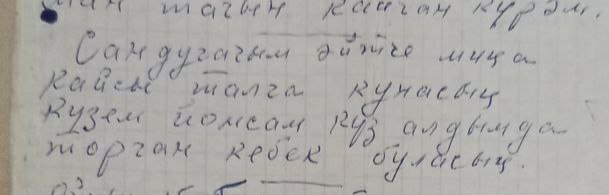 тагын кайчан күрәм.
Сандугачым әйтче миңа
кайсы талга кунасың
күзем йомсам күз алдымда
торган кебек буласың.